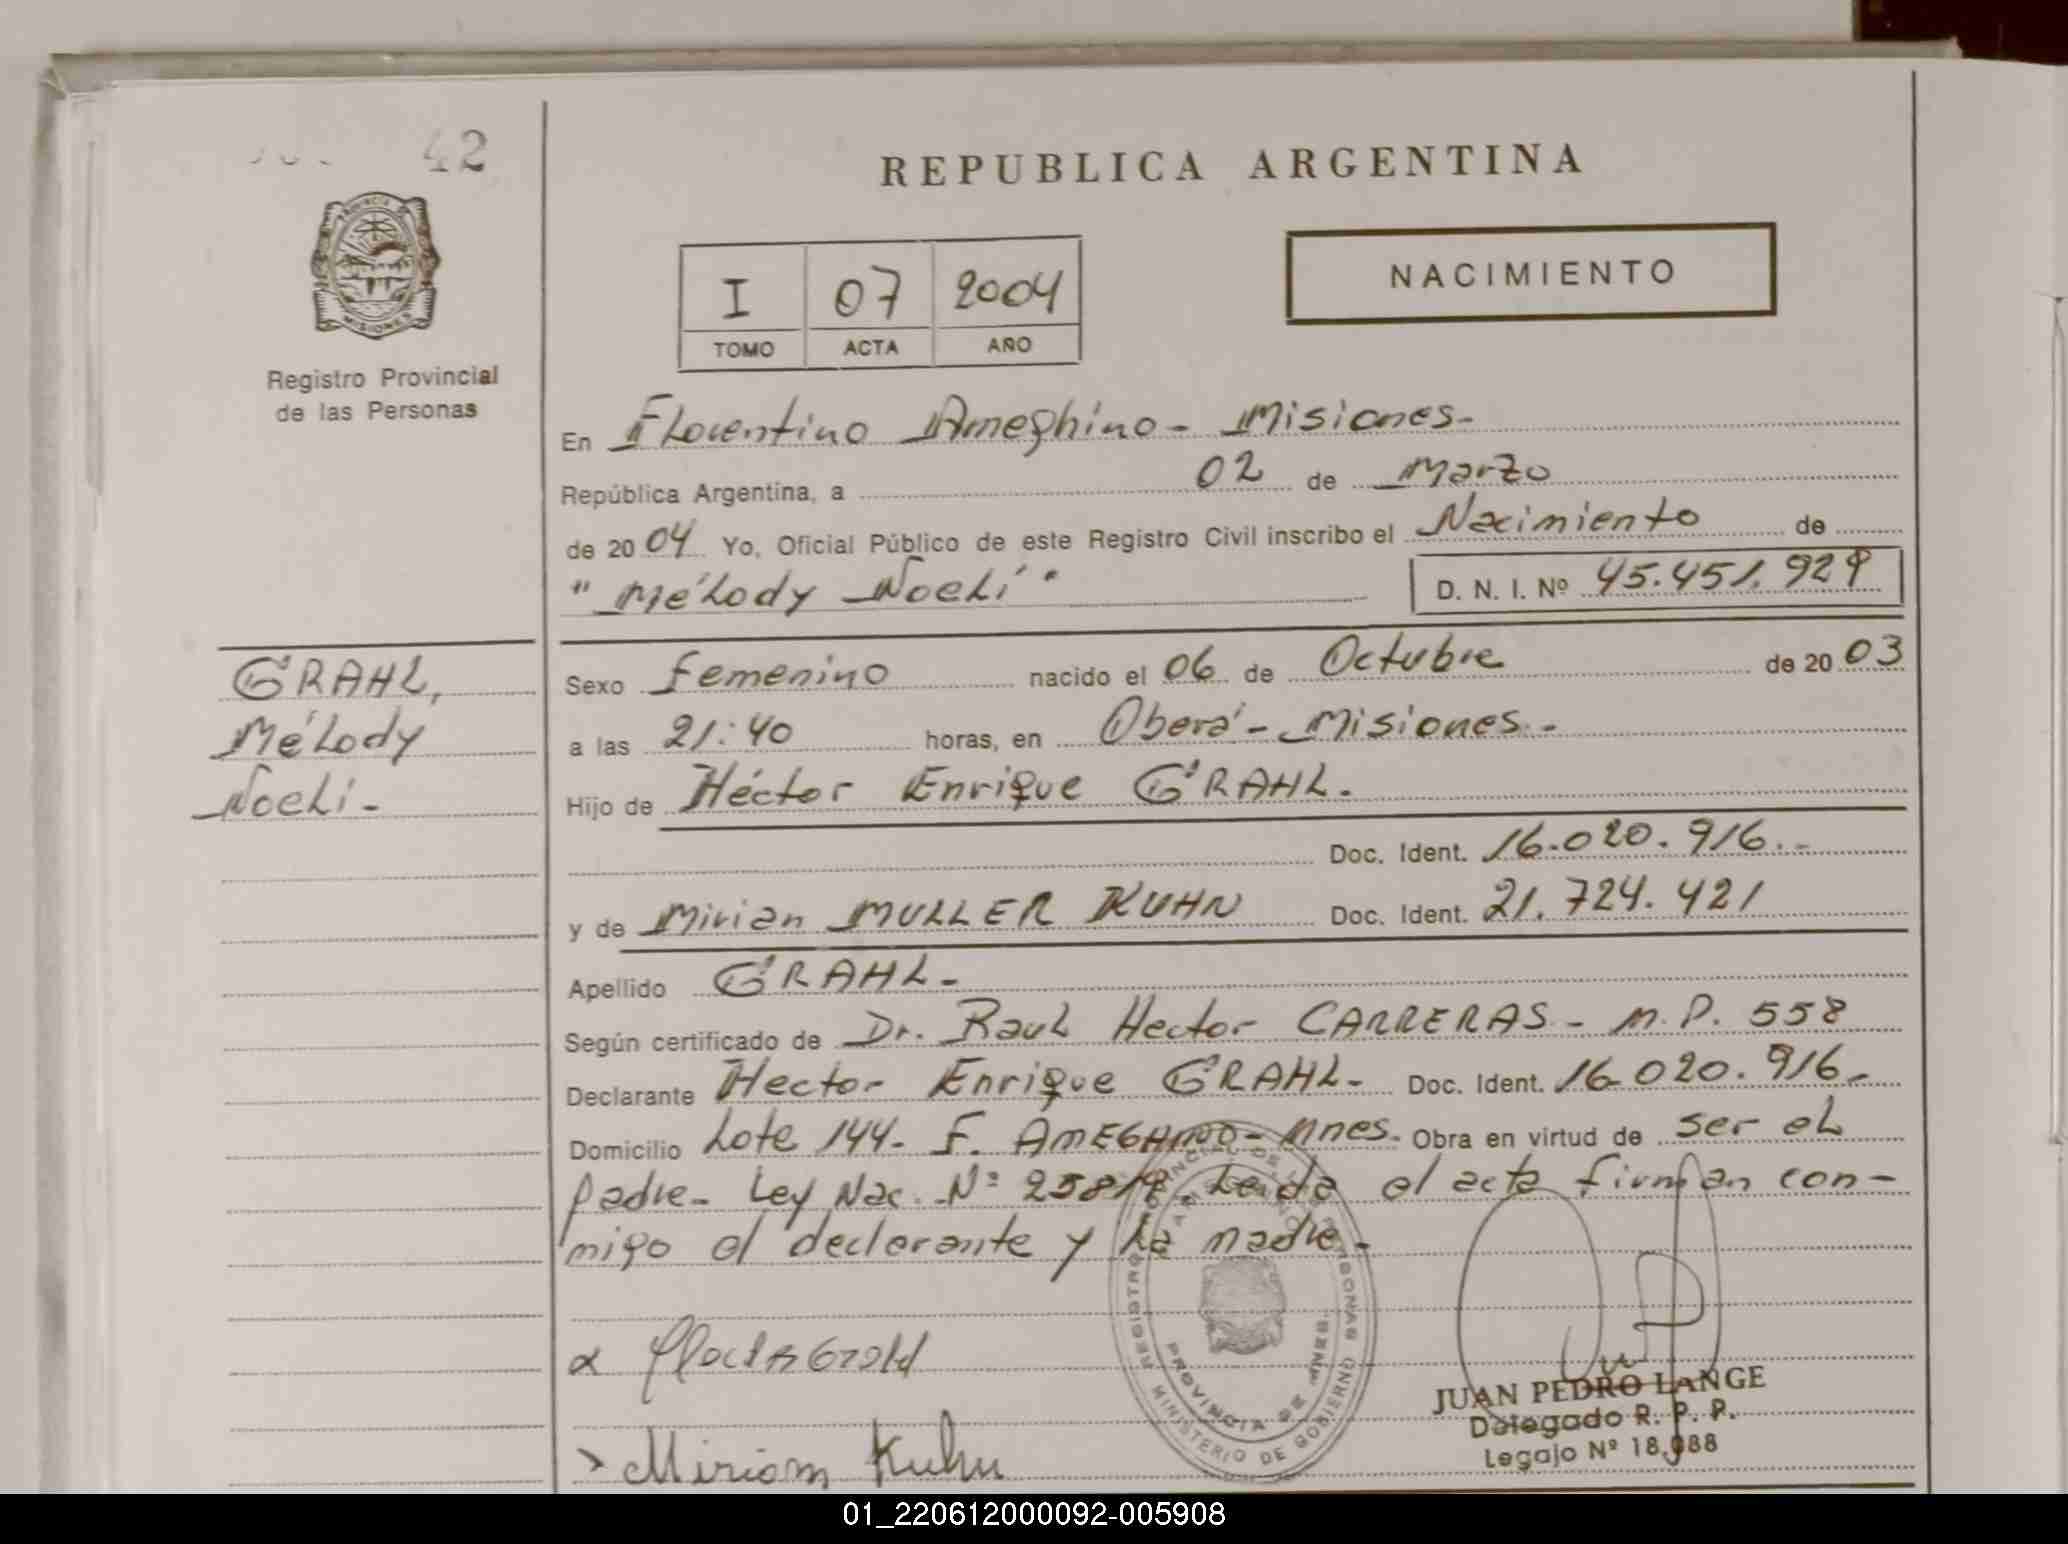 42
REPUBLICA ARGENTINA
PROVINCIA DE
MISIONES
Registro Provincial
de las Personas
I 07 2004
TOMO ACTA AÑO
NACIMIENTO
En Florentino Ameghino - Misiones -
República Argentina, a 02 de Marzo
de 20 04 Yo, Oficial Público de este Registro Civil inscribo el Nacimiento de
"Mélody Noelí" D. N. I. Nº 45.451.929
GRAHL,
Mélody
Noelí -
Sexo femenino nacido el 06 de Octubre de 20 03
a las 21:40 horas, en Oberá - Misiones -
Hijo de Héctor Enrique GRAHL.
Doc. Ident. 16.020.916.-
y de Mirian MULLER KUHN Doc. Ident. 21.724.421
Apellido GRAHL -
Según certificado de Dr. Raul Hector CARRERAS - M.P. 558
Declarante Hector Enrique GRAHL - Doc. Ident. 16.020.916 -
Domicilio Lote 144 - F. AMEGHINO - Mnes. Obra en virtud de ser el
padre - Ley Nac. Nº 25819. Leída el acta firman con-
migo el declarante y la madre -
REGISTRO PROVINCIAL DE LAS PERSONAS
PROVINCIA DE MNES.
MINISTERIO DE GOBIERNO
JUAN PEDRO LANGE
Delegado R. P. P.
Legajo Nº 18.988
Miriam Kuhn
01_220612000092-005908